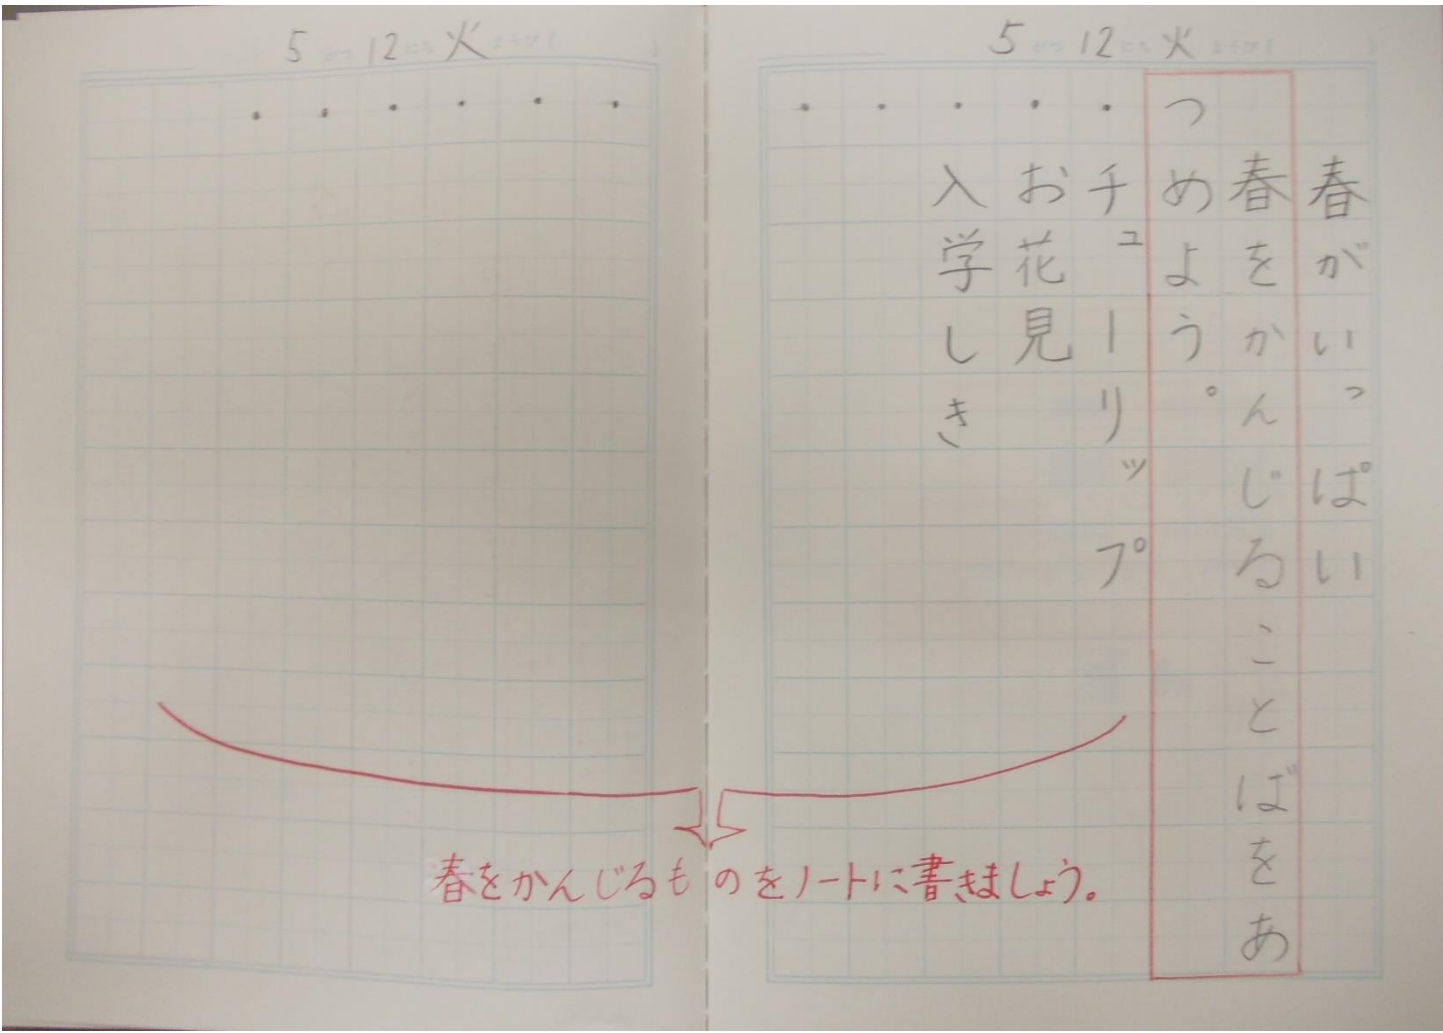 5 がつ 12 にち 火 ようび( )
春がいっぱい
春をかんじることばをあ
つめよう。
・チューリップ
・お花見
・入学しき
・
・
5 がつ 12 にち 火 ようび( )
・
・
・
・
・
・
春をかんじるものをノートに書きましょう。